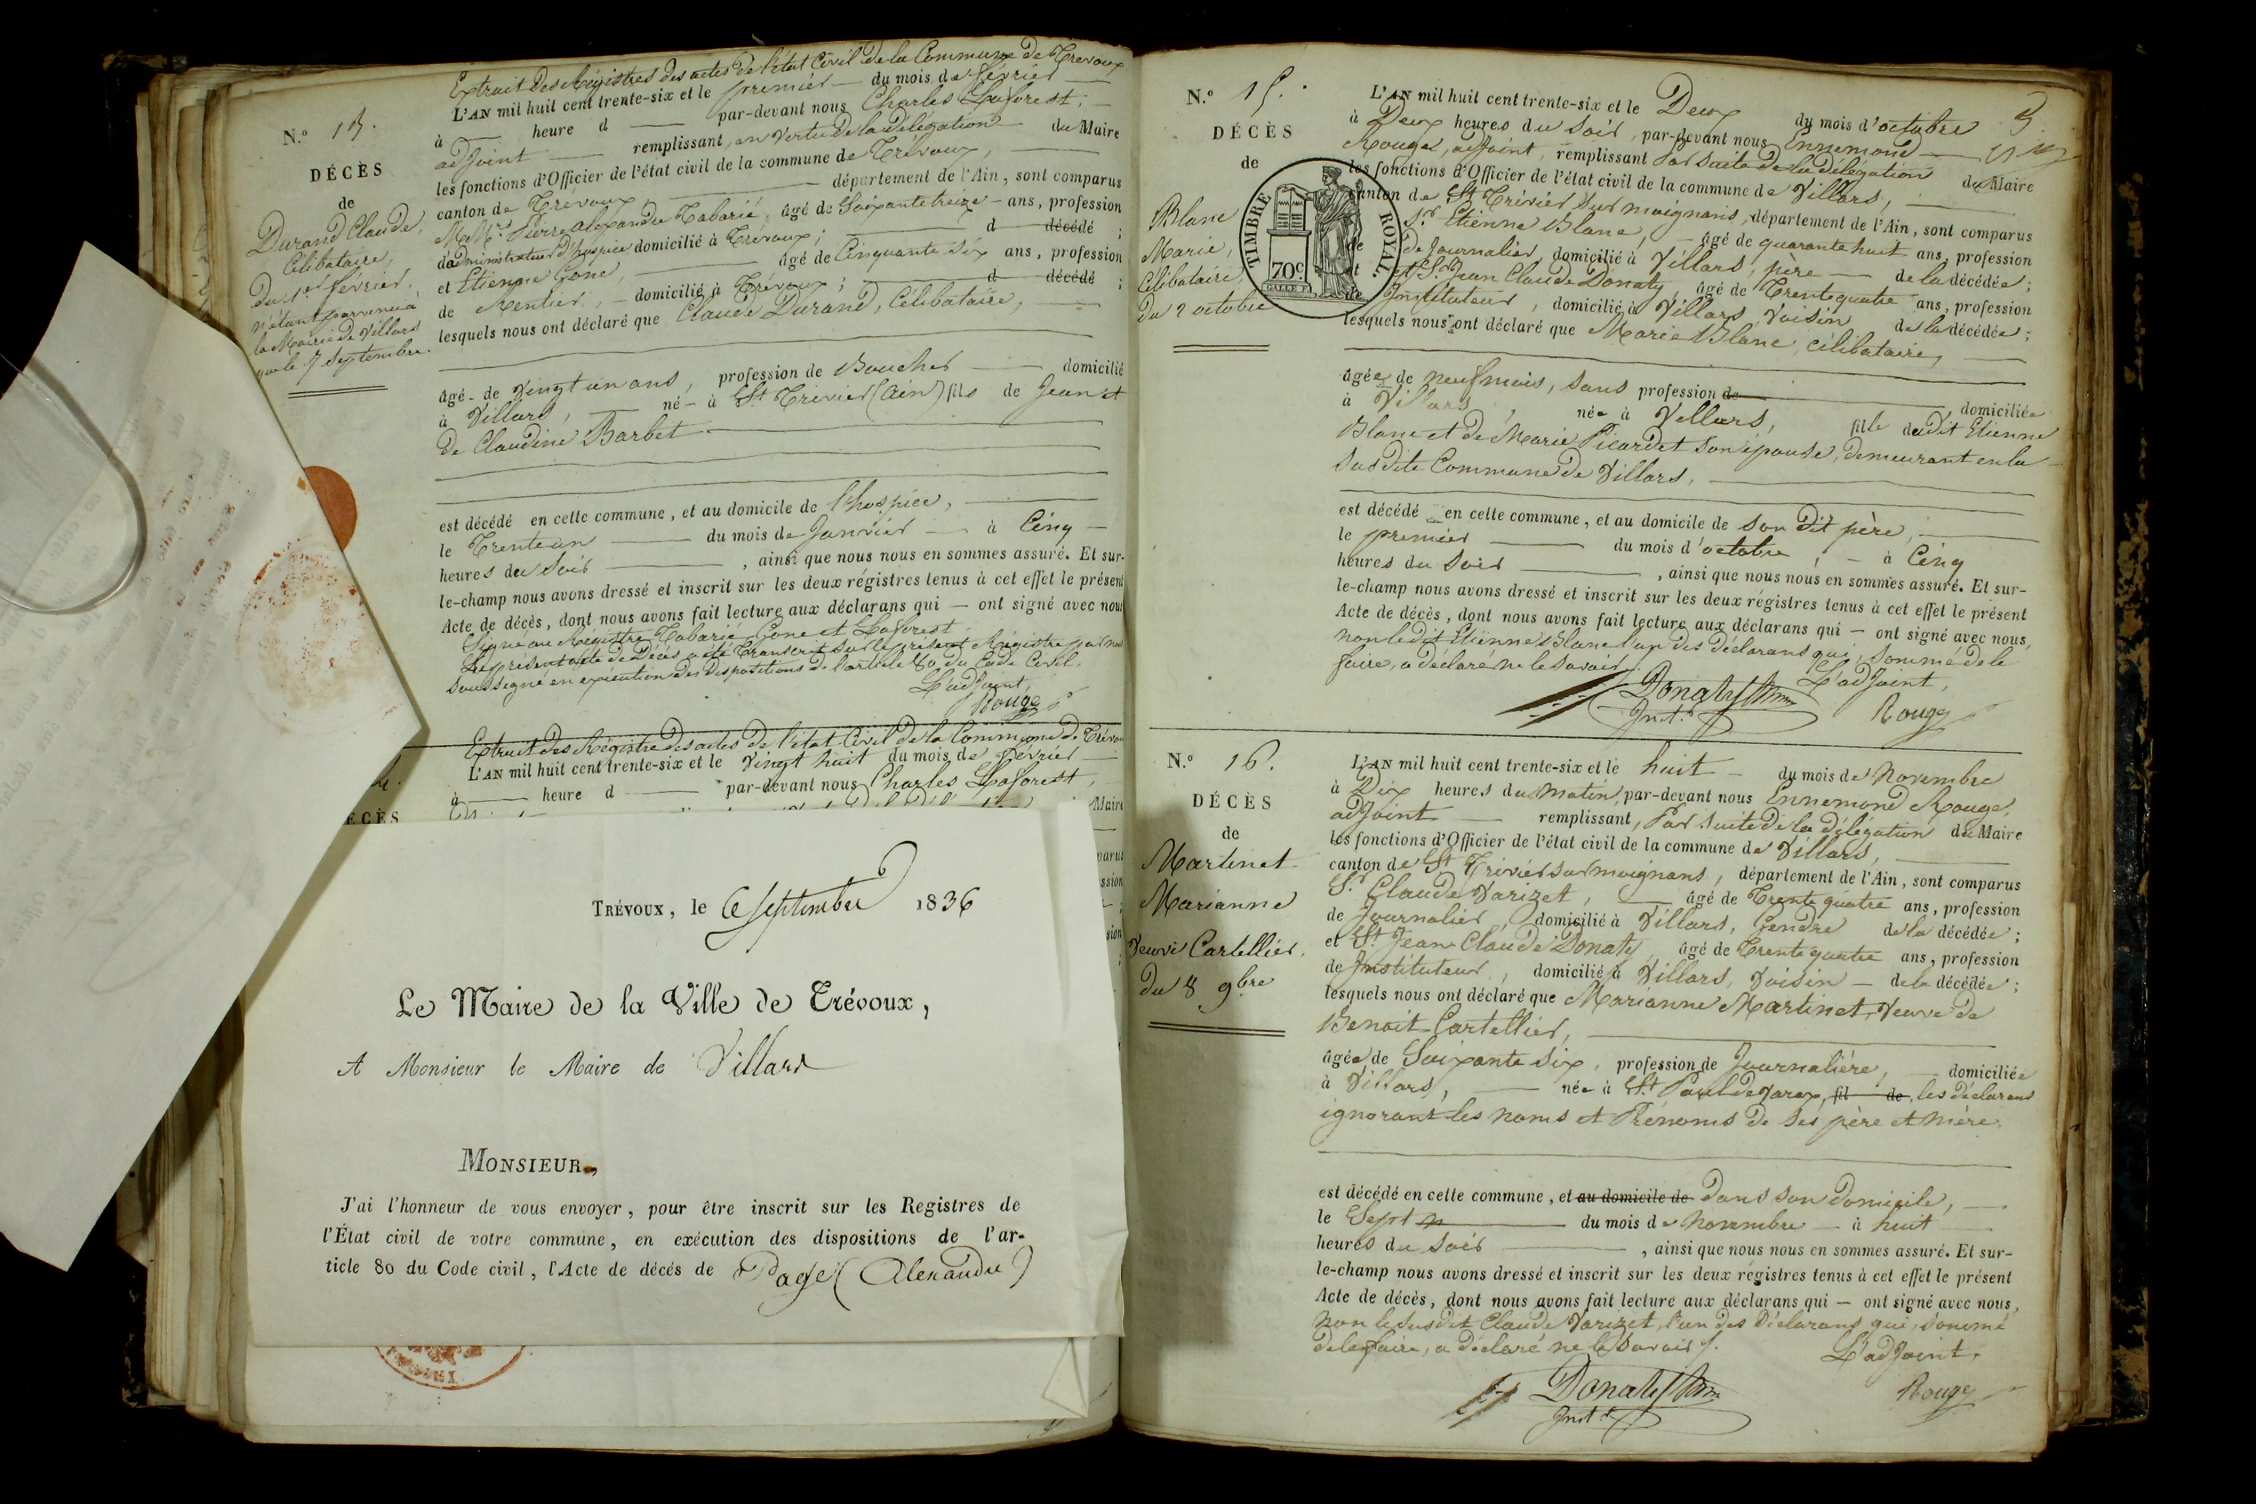 Extrait des Régistres des actes de l'état Civil de la Commune de Trévoux
N.º 13.
DÉCÈS
de
Durand Claude,
Célibataire,
Du 1.er février,
n'étant parvenu à
la Mairie de Villars
que le 7 Septembre.
L'AN mil huit cent trente-six et le premier du mois de février
à heure d par-devant nous Charles Laforest,
adjoint remplissant, en vertu de la délégation du Maire
les fonctions d'Officier de l'état civil de la commune de Trévoux,
canton de Trévoux département de l'Ain, sont comparus
M.M.rs Pierre Alexandre Tabarié, âgé de Soixante treize ans, profession
d'administrateur d'hospice domicilié à Trévoux; d décédé ;
et Etienne Gone, âgé de Cinquante six ans, profession
de Rentier, domicilié à Trévoux; d décédé ;
lesquels nous ont déclaré que Claude Durand, Célibataire,
âgé de vingt un ans, profession de Boucher domicilié
à Villars, né à St Trivier (Ain) fils de Jean et
de Claudine Barbet
est décédé en cette commune, et au domicile de l'hospice,
le Trente un du mois de Janvier à Cinq
heures du soir , ainsi que nous nous en sommes assuré. Et sur-
le-champ nous avons dressé et inscrit sur les deux régistres tenus à cet effet le présent
Acte de décès, dont nous avons fait lecture aux déclarans qui — ont signé avec nous
Signé au Régistre Tabarié, Gone et Laforest
Le présent acte de Décès a été Transcrit sur le présent Régistre par nous
soussigné en exécution des dispositions de l'article 80 du Code Civil.
L'adjoint,
Rouge
Extrait des Régistre des actes de l'état Civil de la Commune de Trévou
L'AN mil huit cent trente-six et le vingt huit du mois de février
à heure d par-devant nous Charles Laforest,
ÉCÈS
Maire
TRÉVOUX, le 6 septembre 1836
Le Maire de la Ville de Trévoux,
A Monsieur le Maire de Villars
MONSIEUR,
J'ai l'honneur de vous envoyer, pour être inscrit sur les Registres de
l'État civil de votre commune, en exécution des dispositions de l'ar-
ticle 80 du Code civil, l'Acte de décès de Page (Alexandre)
N.º 15.
DÉCÈS
de
Blanc
Marie,
Célibataire,
Du 2 octobre
TIMBRE ROYAL.
70c
L'AN mil huit cent trente-six et le Deux du mois d'octobre
à Deux heures du soir, par-devant nous Ennemond
Rouge, adjoint, remplissant Par suite de la délégation du Maire
les fonctions d'Officier de l'état civil de la commune de Villars,
canton de St Trivier sur moignans, département de l'Ain, sont comparus
S.r Etienne Blanc, âgé de quarante huit ans, profession
de Journalier, domicilié à Villars, père de la décédée;
et S.r Jean Claude Donaty, âgé de Trente quatre ans, profession
de Instituteur, domicilié à Villars, Voisin de la décédée;
lesquels nous ont déclaré que Marie Blanc, célibataire,
âgée de neuf mois, sans profession de domiciliée
à Villars, née à Villars, fille dudit Etienne
Blanc et de Marie Picardet son épouse, demeurant en la
susdite Commune de Villars,
est décédé en cette commune, et au domicile de son dit père,
le premier du mois d'octobre, à Cinq
heures du soir , ainsi que nous nous en sommes assuré. Et sur-
le-champ nous avons dressé et inscrit sur les deux régistres tenus à cet effet le présent
Acte de décès, dont nous avons fait lecture aux déclarans qui — ont signé avec nous,
non ledit Etienne Blanc l'un des déclarans qui, sommé de le
faire, a déclaré ne le savoir.
L'adjoint,
Donaty
Inst.r
Rouge
N.º 16.
DÉCÈS
de
Martinet
Marianne
Veuve Cartellier.
Du 8 9bre
L'AN mil huit cent trente-six et le huit du mois de Novembre
à Dix heures du matin, par-devant nous Ennemond Rouge,
adjoint remplissant, Par suite de la délégation du Maire
les fonctions d'Officier de l'état civil de la commune de Villars,
canton de St Trivier sur moignans, département de l'Ain, sont comparus
S.r Claude Varizet, âgé de Trente quatre ans, profession
de Journalier, domicilié à Villars, Gendre de la décédée;
et S.r Jean Claude Donaty, âgé de Trente quatre ans, profession
de Instituteur, domicilié à Villars, Voisin de la décédée;
lesquels nous ont déclaré que Marianne Martinet, Veuve de
Benoit Cartellier,
âgée de Soixante six, profession de Journalière, domiciliée
à Villars, née à St Paul de Varax, fil de les déclarans
ignorant les noms et Prénoms de ses père et mère.
est décédé en cette commune, et au domicile de Dans son domicile,
le Sept du mois de Novembre à huit
heures du soir , ainsi que nous nous en sommes assuré. Et sur-
le-champ nous avons dressé et inscrit sur les deux régistres tenus à cet effet le présent
Acte de décès, dont nous avons fait lecture aux déclarans qui — ont signé avec nous,
non le susdit Claude Varizet, l'un des déclarans qui, sommé
de le faire, a déclaré ne le savoir.
L'adjoint.
Donaty
Inst.r
Rouge